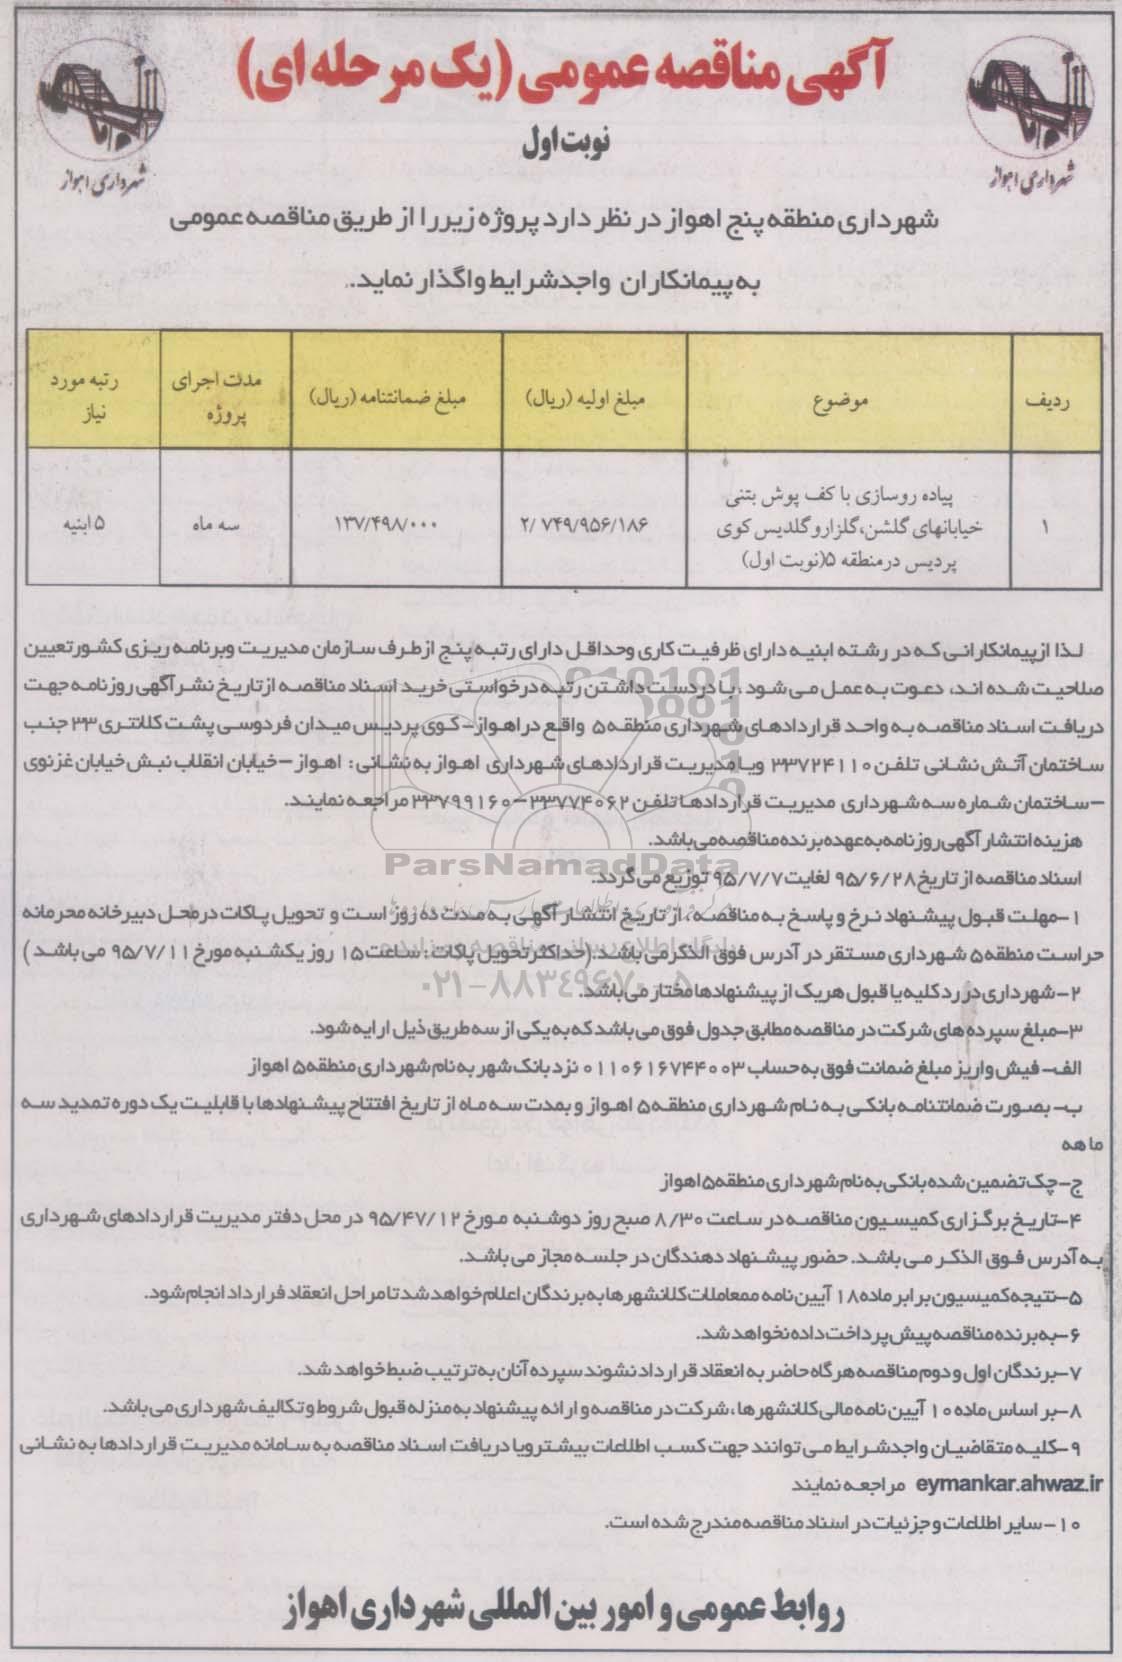 آگهی مناقصه عمومی (یک مرحله ای)
نوبت اول
شهرداری اهواز
شهرداری اهواز
شهرداری منطقه پنج اهواز در نظر دارد پروژه زیر را از طریق مناقصه عمومی
به پیمانکاران واجد شرایط واگذار نماید.
ردیف
موضوع
مبلغ اولیه (ریال)
مبلغ ضمانتنامه (ریال)
مدت اجرای پروژه
رتبه مورد نیاز
۱
پیاده روسازی با کف پوش بتنی
خیابانهای گلشن،گلزاروگلدیس کوی
پردیس درمنطقه ۵(نوبت اول)
۲/ ۷۴۹/۹۵۶/۱۸۶
۱۳۷/۴۹۸/۰۰۰
سه ماه
۵ ابنیه
لذا ازپیمانکارانی که در رشته ابنیه دارای ظرفیت کاری وحداقل دارای رتبه پنج ازطرف سازمان مدیریت وبرنامه ریزی کشورتعیین
صلاحیت شده اند، دعوت به عمل می شود ، با دردست داشتن رتبه درخواستی خرید اسناد مناقصه ازتاریخ نشرآگهی روزنامه جهت
دریافت اسناد مناقصه به واحد قراردادهای شهرداری منطقه۵ واقع دراهواز- کوی پردیس میدان فردوسی پشت کلانتری ۳۳ جنب
ساختمان آتش نشانی تلفن ۳۳۷۲۴۱۱۰ ویا مدیریت قراردادهای شهرداری اهواز به نشانی : اهواز –خیابان انقلاب نبش خیابان غزنوی
–ساختمان شماره سه شهرداری مدیریت قراردادها تلفن ۳۳۷۷۴۰۶۲–۳۳۷۹۹۱۶۰ مراجعه نمایند.
هزینه انتشار آگهی روزنامه به عهده برنده مناقصه می باشد.
اسناد مناقصه از تاریخ ۹۵/۶/۲۸ لغایت ۹۵/۷/۷ توزیع می گردد.
۱-مهلت قبول پیشنهاد نرخ و پاسخ به مناقصه ، از تاریخ انتشار آگهی به مدت ده روز است و تحویل پاکات درمحل دبیرخانه محرمانه
حراست منطقه ۵ شهرداری مستقر در آدرس فوق الذکر می باشد.(حداکثر تحویل پاکات : ساعت ۱۵ روز یکشنبه مورخ ۹۵/۷/۱۱ می باشد )
۲-شهرداری در رد کلیه یا قبول هریک از پیشنهادها مختار می باشد.
۳-مبلغ سپرده های شرکت در مناقصه مطابق جدول فوق می باشد که به یکی از سه طریق ذیل ارایه شود.
الف- فیش واریز مبلغ ضمانت فوق به حساب ۰۱۱۰۶۱۶۷۴۴۰۰۳ نزد بانک شهر به نام شهرداری منطقه۵ اهواز
ب- بصورت ضمانتنامه بانکی به نام شهرداری منطقه۵ اهواز و بمدت سه ماه از تاریخ افتتاح پیشنهادها با قابلیت یک دوره تمدید سه
ماهه
ج-چک تضمین شده بانکی به نام شهرداری منطقه۵اهواز
۴-تاریخ برگزاری کمیسیون مناقصه در ساعت ۸/۳۰ صبح روز دوشنبه مورخ ۹۵/۴۷/۱۲ در محل دفتر مدیریت قراردادهای شهرداری
به آدرس فوق الذکر می باشد. حضور پیشنهاد دهندگان در جلسه مجاز می باشد.
۵-نتیجه کمیسیون برابر ماده ۱۸ آیین نامه ممعاملات کلانشهرها به برندگان اعلام خواهد شد تا مراحل انعقاد قرارداد انجام شود.
۶-به برنده مناقصه پیش پرداخت داده نخواهد شد.
۷-برندگان اول و دوم مناقصه هرگاه حاضر به انعقاد قرارداد نشوند سپرده آنان به ترتیب ضبط خواهد شد.
۸-بر اساس ماده ۱۰ آیین نامه مالی کلانشهرها ، شرکت در مناقصه و ارائه پیشنهاد به منزله قبول شروط و تکالیف شهرداری می باشد.
۹-کلیه متقاضیان واجد شرایط می توانند جهت کسب اطلاعات بیشترویا دریافت اسناد مناقصه به سامانه مدیریت قراردادها به نشانی
eymankar.ahwaz.ir مراجعه نمایند
۱۰-سایر اطلاعات و جزئیات در اسناد مناقصه مندرج شده است.
روابط عمومی و امور بین المللی شهرداری اهواز
ParsNamadData
۰۲۱-۸۸۳۴۹۶۷۰-۵